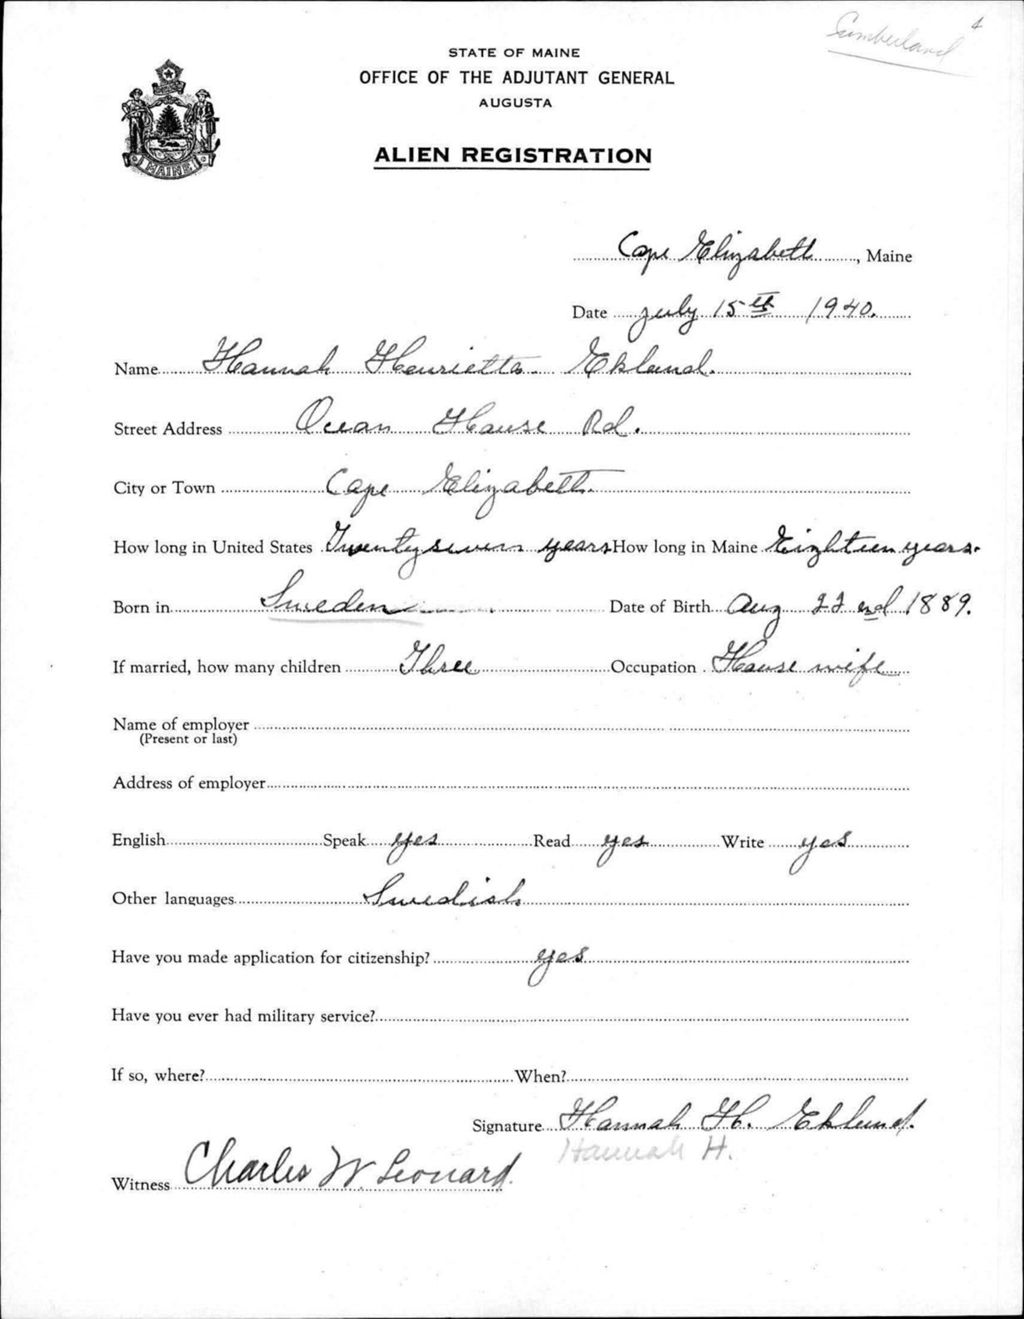 Cumberland
STATE OF MAINE
OFFICE OF THE ADJUTANT GENERAL
AUGUSTA
ALIEN REGISTRATION
MAINE
Cape Elizabeth, Maine
Date July 15th 1940.
Name Hannah Henrietta Eklund.
Street Address Ocean House Rd.
City or Town Cape Elizabeth.
How long in United States Twenty seven years How long in Maine Eighteen years.
Born in Sweden Date of Birth Aug 22nd 1889.
If married, how many children Three Occupation House wife
Name of employer
(Present or last)
Address of employer
English Speak yes Read yes Write yes
Other languages Swedish
Have you made application for citizenship? yes
Have you ever had military service?
If so, where? When?
Signature Hannah H. Eklund.
Hannah H.
Witness Charles W. Leonard.